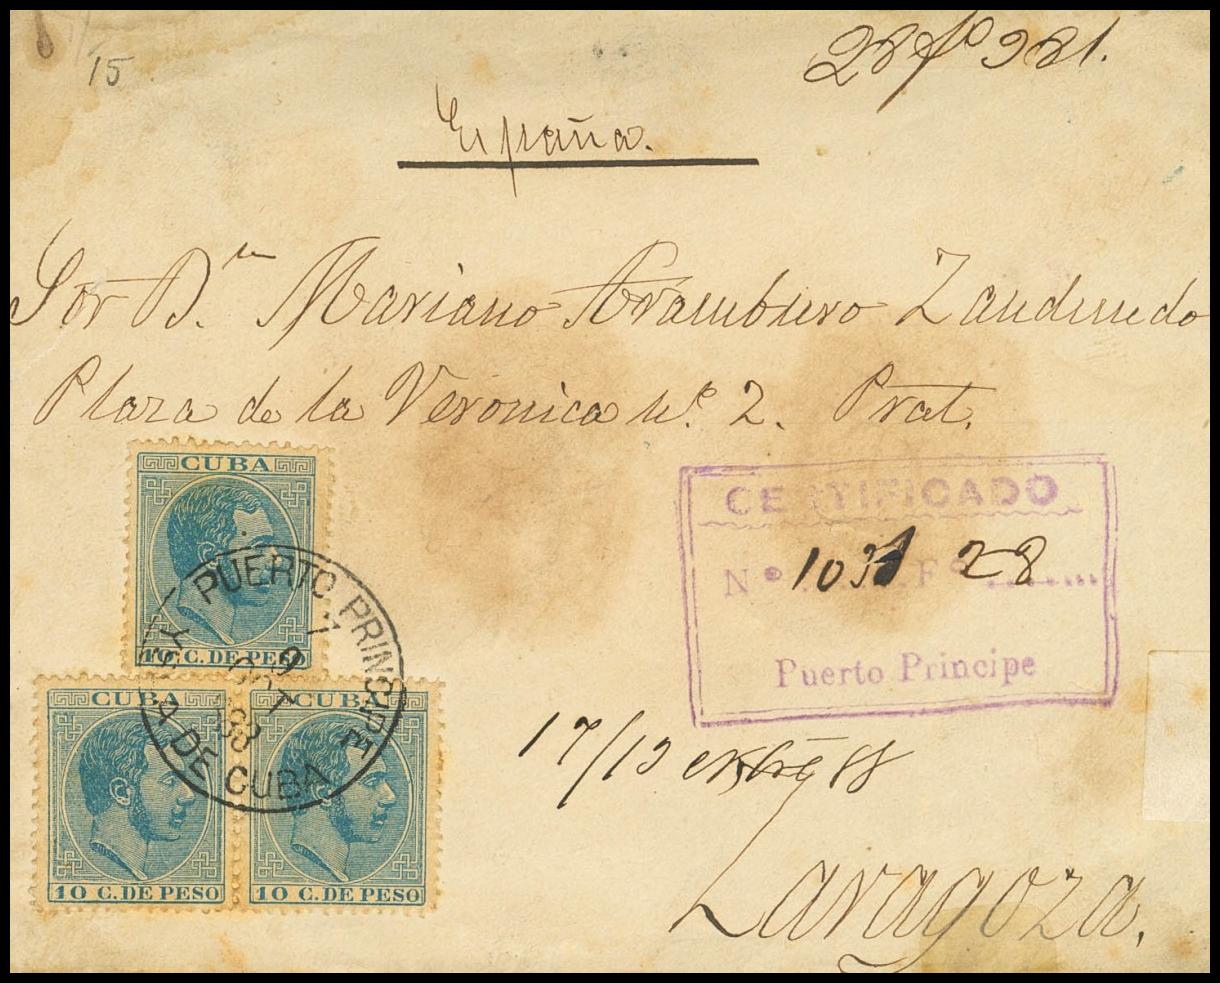 28 fº 981.
15
España.
Sor D.n Mariano Aramburo Zandundo
Plaza de la Verónica nº. 2. Prat.
CUBA
10 C. DE PESO
CUBA
10 C. DE PESO
CUBA
10 C. DE PESO
PUERTO PRINCIPE
YSLA DE CUBA
9
OCT
88
CERTIFICADO
Nº 1031 Fº 28
Puerto Principe
17/10 88
Zaragoza.